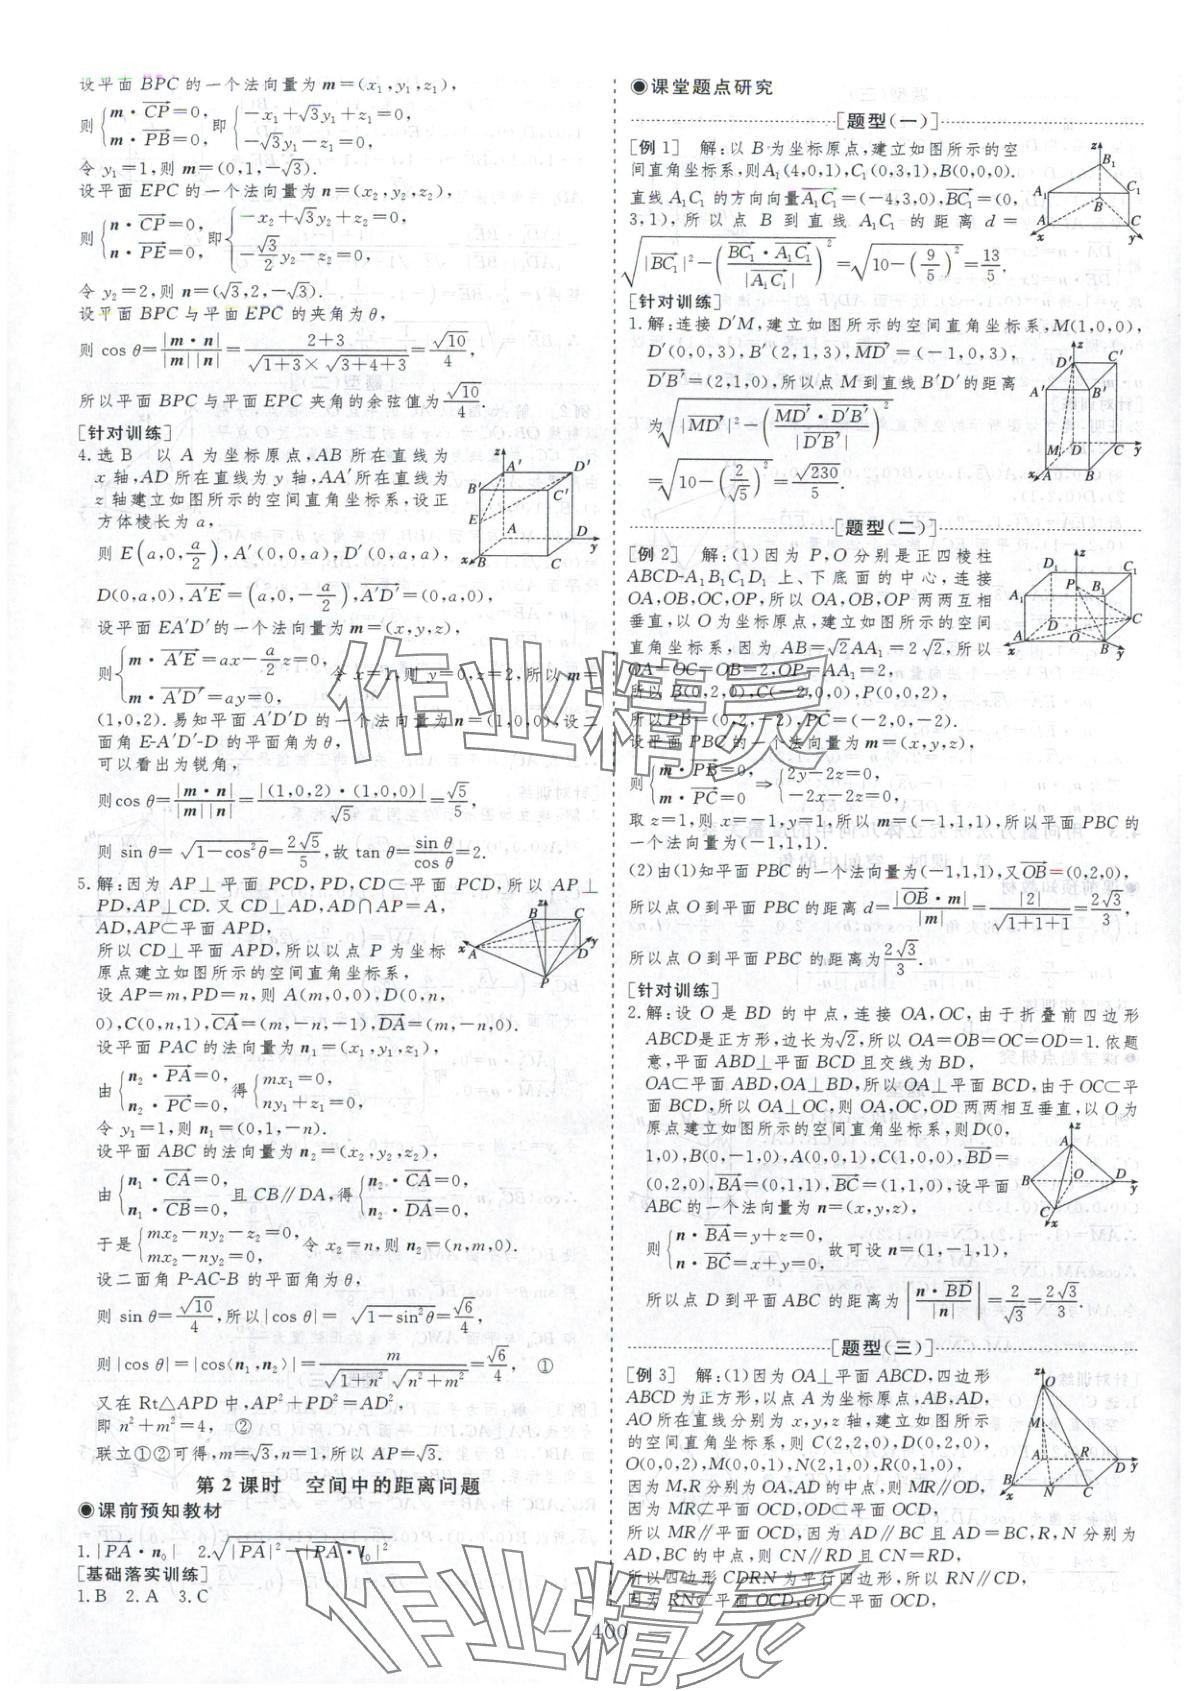 设平面 BPC 的一个法向量为 m=(x₁,y₁,z₁),
则{m·CP=0, m·PB=0, 即{-x₁+√3y₁+z₁=0, -√3y₁-z₁=0,
令 y₁=1,则 m=(0,1,-√3).
设平面 EPC 的一个法向量为 n=(x₂,y₂,z₂),
则{n·CP=0, n·PE=0, 即{-x₂+√3y₂+z₂=0, -√3/2 y₂-z₂=0,
令 y₂=2,则 n=(√3,2,-√3).
设平面 BPC 与平面 EPC 的夹角为θ,
则 cos θ=|m·n|/(|m||n|)=(2+3)/(√(1+3)×√(3+4+3))=√10/4,
所以平面 BPC 与平面 EPC 夹角的余弦值为√10/4.
[针对训练]
4.选 B 以 A 为坐标原点,AB 所在直线为
x 轴,AD 所在直线为 y 轴,AA′所在直线为
z 轴建立如图所示的空间直角坐标系,设正
方体棱长为 a,
则 E(a,0,a/2),A′(0,0,a),D′(0,a,a),
D(0,a,0),A′E=(a,0,-a/2),A′D′=(0,a,0),
设平面 EA′D′的一个法向量为 m=(x,y,z),
则{m·A′E=ax-a/2 z=0, m·A′D′=ay=0, 令 x=1,则 y=0,z=2,所以 m=
(1,0,2).易知平面 A′D′D 的一个法向量为 n=(1,0,0),设二
面角 E-A′D′-D 的平面角为θ,
可以看出为锐角,
则cos θ=|m·n|/(|m||n|)=|(1,0,2)·(1,0,0)|/√5=√5/5,
则 sin θ=√(1-cos²θ)=2√5/5,故 tan θ=sin θ/cos θ=2.
5.解:因为 AP⊥平面 PCD,PD,CD⊂平面 PCD,所以 AP⊥
PD,AP⊥CD.又 CD⊥AD,AD∩AP=A,
AD,AP⊂平面 APD,
所以 CD⊥平面 APD,所以以点 P 为坐标
原点建立如图所示的空间直角坐标系,
设 AP=m,PD=n,则 A(m,0,0),D(0,n,
0),C(0,n,1),CA=(m,-n,-1),DA=(m,-n,0).
设平面 PAC 的法向量为 n₁=(x₁,y₁,z₁),
由{n₂·PA=0, n₂·PC=0, 得{mx₁=0, ny₁+z₁=0,
令 y₁=1,则 n₁=(0,1,-n).
设平面 ABC 的法向量为 n₂=(x₂,y₂,z₂),
由{n₁·CA=0, n₁·CB=0, 且 CB∥DA,得{n₂·CA=0, n₂·DA=0,
于是{mx₂-ny₂-z₂=0, mx₂-ny₂=0, 令 x₂=n,则 n₂=(n,m,0).
设二面角 P-AC-B 的平面角为θ,
则 sin θ=√10/4,所以|cos θ|=√(1-sin²θ)=√6/4,
则|cos θ|=|cos⟨n₁,n₂⟩|=m/(√(1+n²)√(n²+m²))=√6/4, ①
又在 Rt△APD 中,AP²+PD²=AD²,
即 n²+m²=4, ②
联立①②可得,m=√3,n=1,所以 AP=√3.
第 2 课时 空间中的距离问题
●课前预知教材
1.|PA·n₀| 2.√(|PA|²-|PA·v₀|²)
[基础落实训练]
1.B 2.A 3.C
●课堂题点研究
[题型(一)]
[例 1] 解:以 B 为坐标原点,建立如图所示的空
间直角坐标系,则A₁(4,0,1),C₁(0,3,1),B(0,0,0).
直线 A₁C₁ 的方向向量A₁C₁=(-4,3,0),BC₁=(0,
3,1),所以点 B 到直线 A₁C₁ 的距离 d=
√(|BC₁|²-(BC₁·A₁C₁/|A₁C₁|)²)=√(10-(9/5)²)=13/5.
[针对训练]
1.解:连接 D′M,建立如图所示的空间直角坐标系,M(1,0,0),
D′(0,0,3),B′(2,1,3),MD′=(-1,0,3),
D′B′=(2,1,0),所以点 M 到直线 B′D′的距离
为√(|MD′|²-(MD′·D′B′/|D′B′|)²)
=√(10-(-2/√5)²)=√230/5.
[题型(二)]
[例 2] 解:(1)因为 P,O 分别是正四棱柱
ABCD-A₁B₁C₁D₁ 上、下底面的中心,连接
OA,OB,OC,OP,所以 OA,OB,OP 两两互相
垂直,以 O 为坐标原点,建立如图所示的空间
直角坐标系,因为 AB=√2AA₁=2√2,所以
OA=OC=OB=2,OP=AA₁=2,
所以 B(0,2,0),C(-2,0,0),P(0,0,2),
所以PB=(0,2,-2),PC=(-2,0,-2).
设平面 PBC 的一个法向量为 m=(x,y,z),
则{m·PB=0, m·PC=0 ⇒{2y-2z=0, -2x-2z=0.
取 z=1,则 x=-1,y=1,所以 m=(-1,1,1),所以平面 PBC 的
一个法向量为(-1,1,1).
(2)由(1)知平面 PBC 的一个法向量为(-1,1,1),又OB=(0,2,0),
所以点 O 到平面 PBC 的距离 d=|OB·m|/|m|=|2|/√(1+1+1)=2√3/3,
所以点 O 到平面 PBC 的距离为2√3/3.
[针对训练]
2.解:设 O 是 BD 的中点,连接 OA,OC,由于折叠前四边形
ABCD是正方形,边长为√2,所以 OA=OB=OC=OD=1.依题
意,平面 ABD⊥平面 BCD 且交线为 BD,
OA⊂平面 ABD,OA⊥BD,所以 OA⊥平面 BCD,由于 OC⊂平
面 BCD,所以 OA⊥OC,则 OA,OC,OD 两两相互垂直,以 O 为
原点建立如图所示的空间直角坐标系,则D(0,
1,0),B(0,-1,0),A(0,0,1),C(1,0,0),BD=
(0,2,0),BA=(0,1,1),BC=(1,1,0),设平面
ABC 的一个法向量为 n=(x,y,z),
则{n·BA=y+z=0, n·BC=x+y=0, 故可设 n=(1,-1,1),
所以点 D 到平面 ABC 的距离为|n·BD/|n||=2/√3=2√3/3.
[题型(三)]
[例 3] 解:(1)因为 OA⊥平面 ABCD,四边形
ABCD 为正方形,以点 A 为坐标原点,AB,AD,
AO 所在直线分别为 x,y,z 轴,建立如图所示
的空间直角坐标系,则 C(2,2,0),D(0,2,0),
O(0,0,2),M(0,0,1),N(2,1,0),R(0,1,1),
因为 MR⊄平面 OCD,OD⊂平面 OCD,
所以 MR∥平面 OCD,因为 AD∥BC 且 AD=BC,R,N 分别为
AD,BC 的中点,则 CN∥RD 且 CN=RD,
所以四边形 CDRN 为平行四边形,所以 RN∥CD,
因为 RN⊄平面 OCD,CD⊂平面 OCD,
400
作业精灵
作业精灵